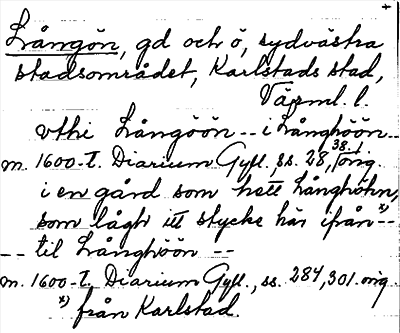 Långön, gd och ö, sydvästra
stadsområdet, Karlstads stad,
Värml. l.
vthi Långöön -- i Långhöön --
m. 1600-t. Diarium Gyll., ss. 28, 38. orig.
i en gård som hett Långhöhn,
som lågh itt stycke här ifrån x) --
-- til Långhöön --
m. 1600-t. Diarium Gyll., ss. 284, 301. orig.
x) från Karlstad.